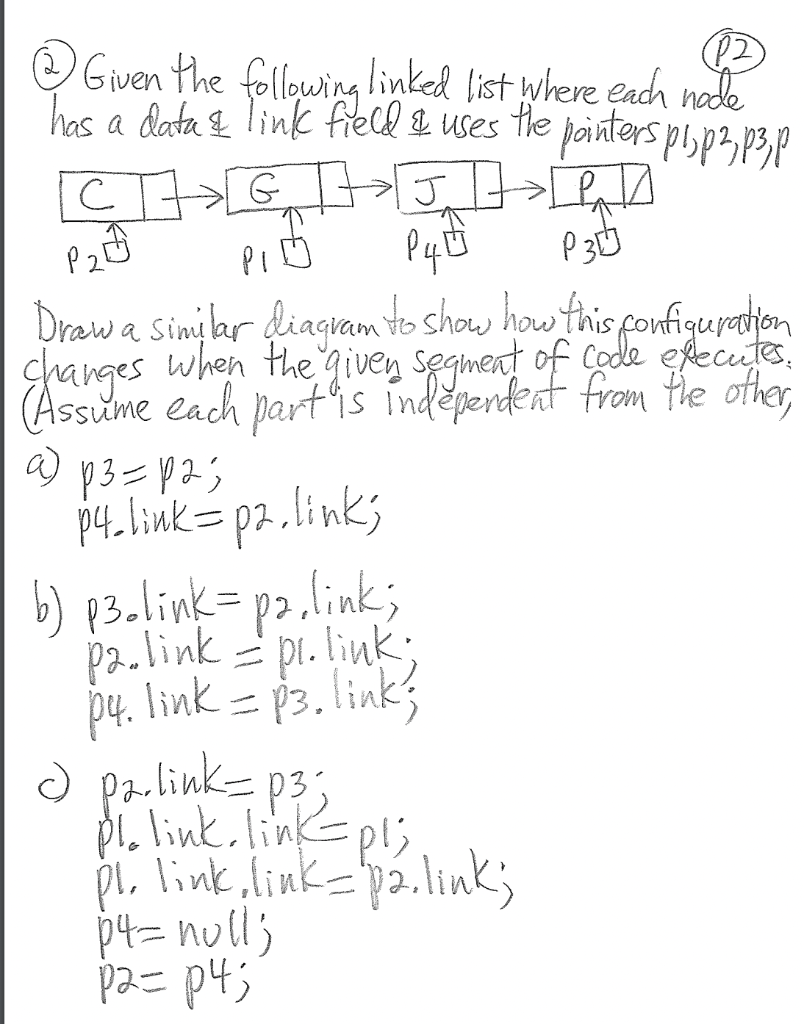 P2
② Given the following linked list where each node
has a data & link field & uses the pointers p1, p2, p3, p
C G J P
P2 P1 P4 P3
Draw a similar diagram to show how this configuration
changes when the given segment of code executes.
(Assume each part is independent from the other)
a) p3 = p2;
p4.link = p2.link;
b) p3.link = p2.link;
p2.link = p1.link;
p4.link = p3.link;
c) p2.link = p3;
p1.link.link = p1;
p1.link.link = p2.link;
p4 = null;
p2 = p4;